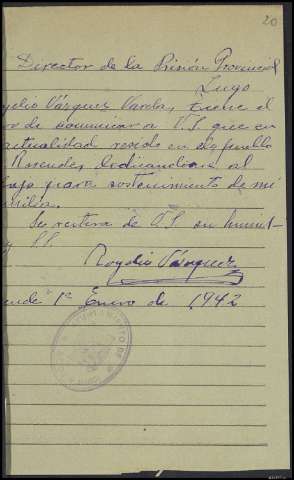 20
Director de la Prisión Provincial
Lugo
gelio Vázquez Varela, tiene el
or de comunicar a V.S. que en
actualidad resido en el pueblo
Rosende, dedicandose al
bajo para sostenimiento de mi
amilia.
de V.S. su humil-
Rogelio Vázquez
ende 1º Enero de 1942